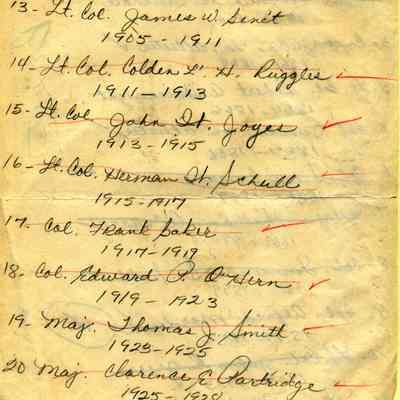 13- Lt. Col. James W. Benét
1905 - 1911
14- Lt. Col. Colden L' H. Ruggles
1911 - 1913
15- Lt. Col John W. Joyes
1913 - 1915
16- Lt. Col. Herman W. Schull
1915-1917
17- Col. Frank Baker
1917 - 1919
18- Col. Edward P. O'Hern
1919 - 1923
19- Maj. Thomas J. Smith
1923-1925
20 Maj. Clarence E. Partridge
1925 - 1928